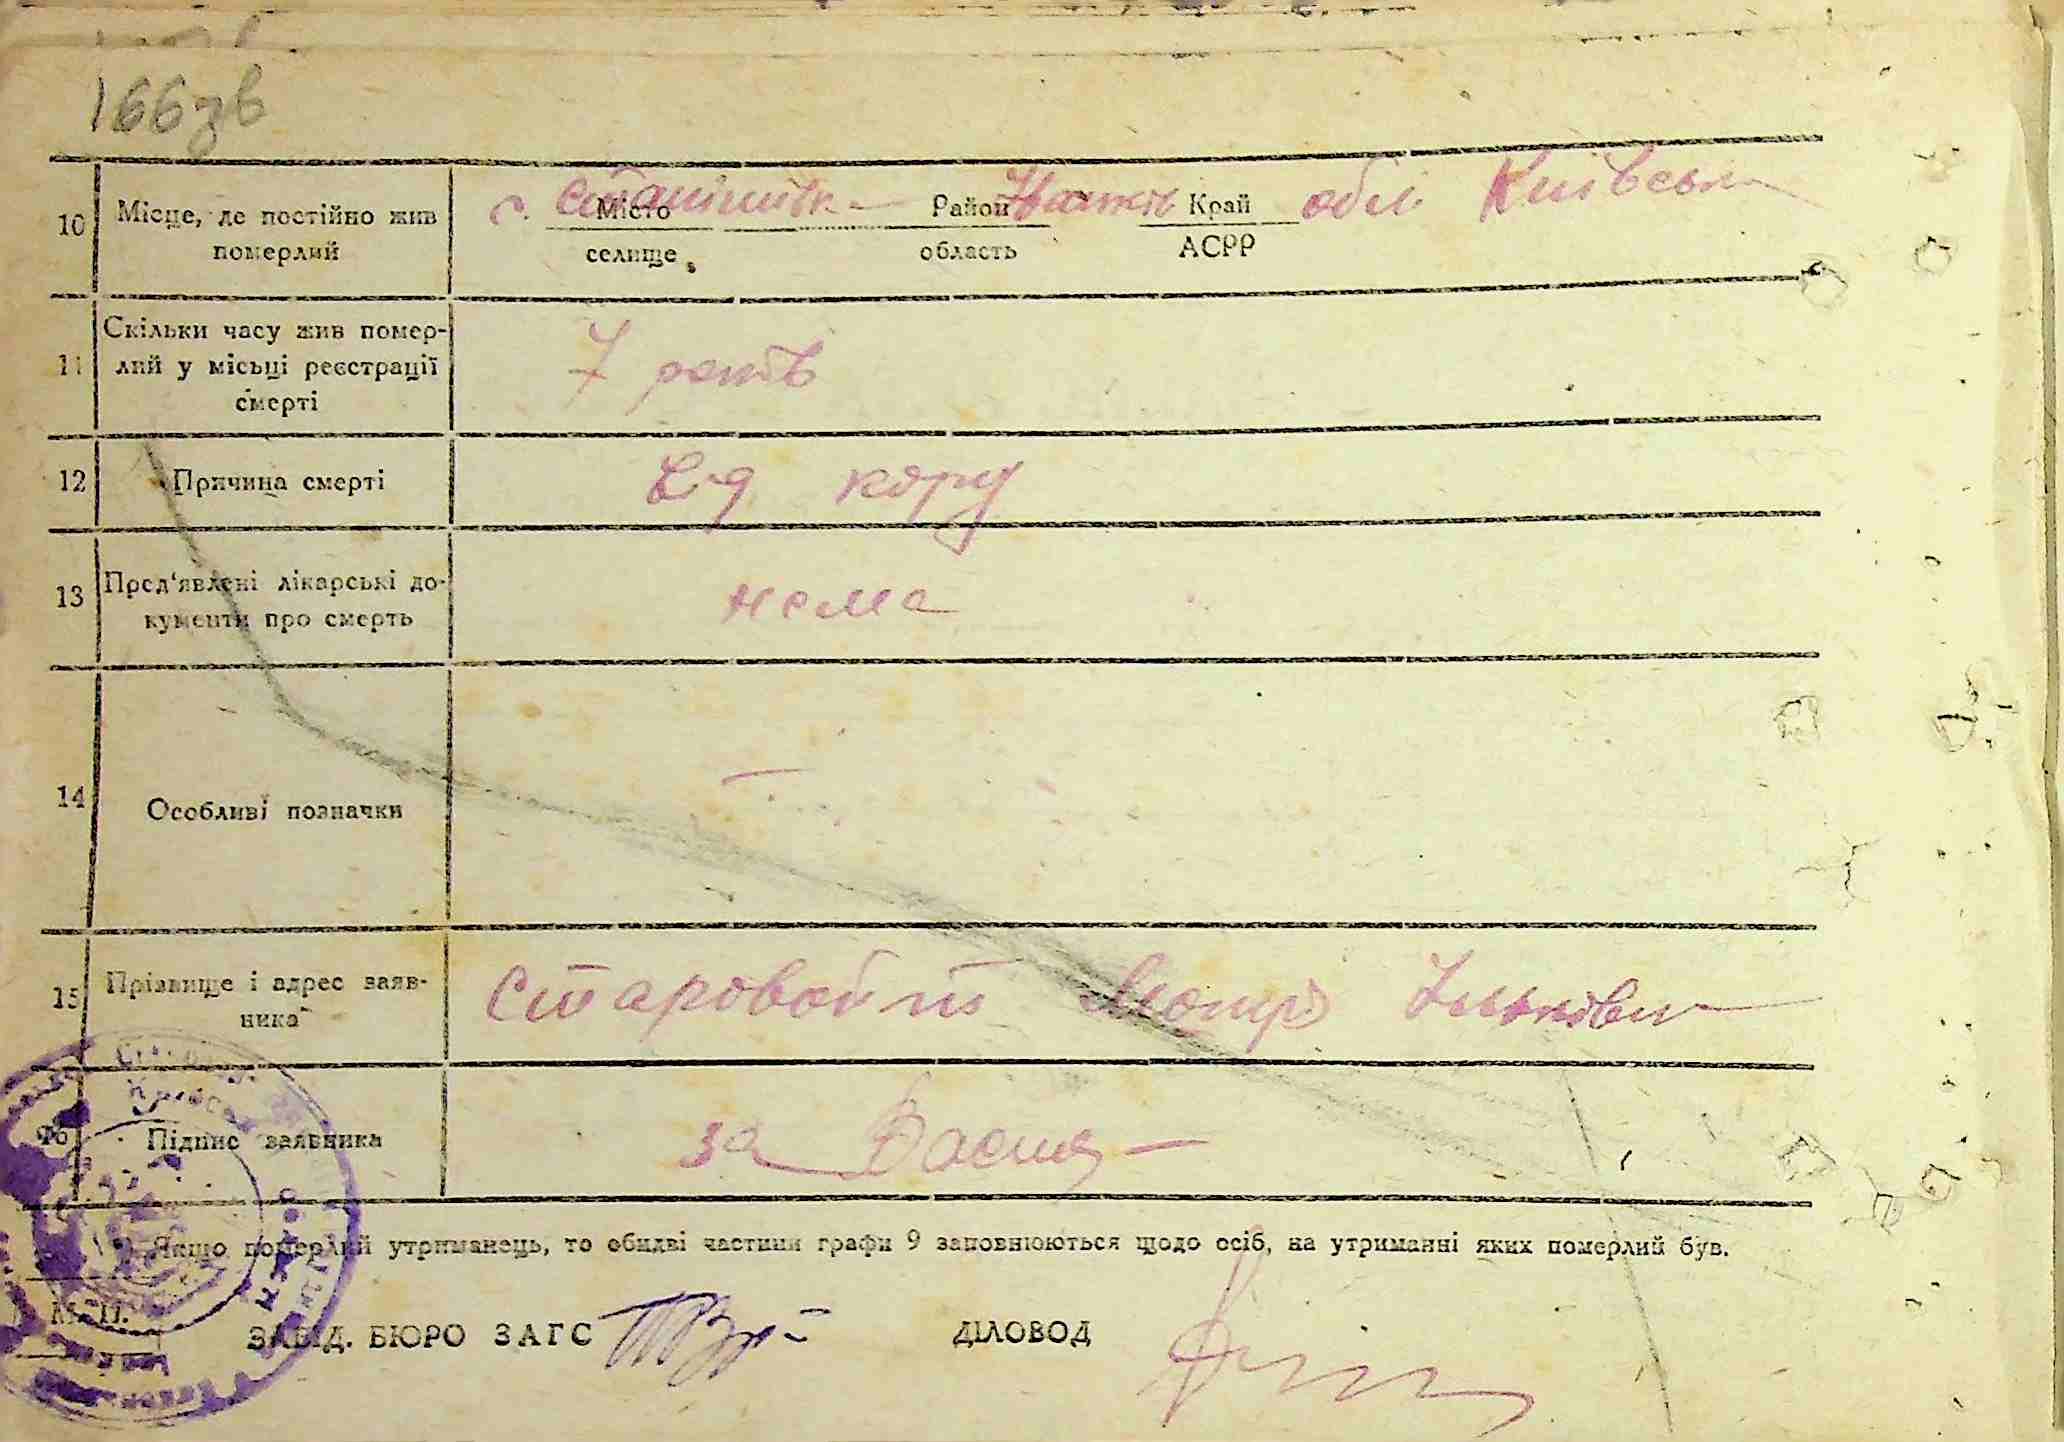 166зв
10 Місце, де постійно жив померлий с. Місто селище Район область Край АСРР обл Київськ
11 Скільки часу жив помер-
лий у місьці реєстрації
смерті 7 років
12 Причина смерті Від кору
13 Пред'явлені лікарські до-
кументи про смерть нема
14 Особливі позначки —
15 Прізвище і адрес заяв-
ника Старовойт
16 Підпис заявника за
Якщо померлий утриманець, то обидві частини графи 9 заповнюються щодо осіб, на утриманні яких померлий був.
М. П.
ЗАВІД. БЮРО ЗАГС ДІЛОВОД